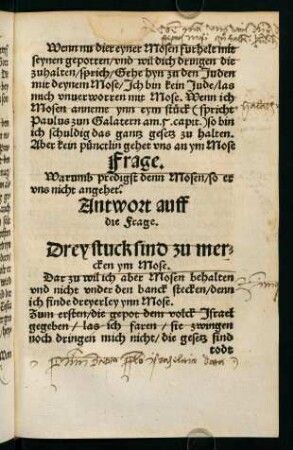 Wenn nu dir eyner Mosen furhelt mit
seynen gepotten/ vnd wil dich dringen die
zuhalten/ sprich/ Gehe hyn zu den Juden
mit deynem Mose/ Ich bin kein Jude/ las
mich vnuerworren mit Mose. Wenn ich
Mosen anneme ynn eym stück (spricht
Paulus zun Galatern am 5. capit.) so bin
ich schuldig das gantz gesetz zu halten.
Aber kein pünctlin gehet vns an ym Mose
Frage.
Warumb predigst denn Mosen/ so er
vns nicht angehet?
Antwort auff
die Frage.
Drey stuck sind zu mer-
cken ym Mose.
Dar zu wil ich aber Mosen behalten
vnd nicht vnder den banck stecken/ denn
ich finde dreyerley ynn Mose.
Zum ersten/ die gepot dem volck Israel
gegeben/ las ich faren/ sie zwingen
noch dringen mich nicht/ die gesetz sind
todt